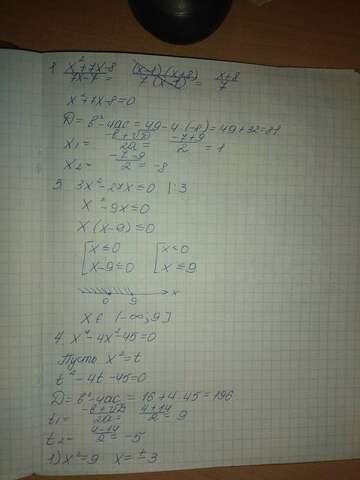 1. (x²+7x-8)/(7x-7) = ((x-1)(x+8))/(7(x-1)) = (x+8)/7
x²+7x-8=0
D=b²-4ac=49-4·(-8)=49+32=81
x₁=(-b+√D)/2a=(-7+9)/2=1
x₂=(-7-9)/2=-8
3. 3x²-27x≤0 |:3
x²-9x≤0
x(x-9)≤0
[x≤0 [x≤0
[x-9≤0 [x≤9
0 9 x
x∈(-∞;9]
4. x⁴-4x²-45=0
Пусть x²=t
t²-4t-45=0
D=b²-4ac=16+4·45=196
t₁=(-b+√D)/2a=(4+14)/2=9
t₂=(4-14)/2=-5
1) x²=9 x=±3